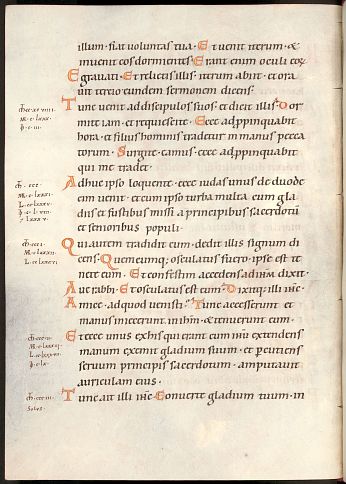 illum· fiat voluntas tua· Et venit iterum· &
invenit eos dormientes· Erant enim oculi eoꝝ
gravati· Et relictis illis· iterum abiit· et ora
vit tercio eundem sermonem dicens·
Tunc venit ad discipulos suos· et dicit illis· Dor
mite iam· et requiescite· Ecce adpropinquabit
hora· et filius hominis tradetur in manus pecca
torum· Surgite· eamus· ecce adpropinquabit
qui me tradet·
Adhuc ipso loquente· ecce iudas unus de duode
cim venit· et cum ipso turba multa cum gla
diis et fustibus missi a principibus sacerdotū
et senioribus populi·
Qui autem tradidit eum· dedit illis signum di
cens· Quemcumq; osculatus fuero· ipse est te
nete eum· Et confestim accedens ad ihm̄ dixit·
Ave rabbi· Et osculatus est eum· Dixitq; illi ihc̄·
Amice· adquod venisti· Tunc accesserunt et
manus iniecerunt in ihm̄· & tenuerunt eum·
Et ecce unus ex his qui erant cum ihū extendens
manum exemit gladium suum· et percutiens
servum principis sacerdotum· amputavit
auriculam eius·
Tunc ait illi ihc̄· Converte gladium tuum· in